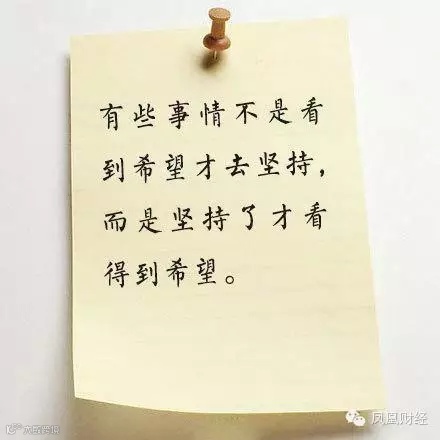 有些事情不是看
到希望才去坚持，
而是坚持了才看
得到希望。
凤凰财经